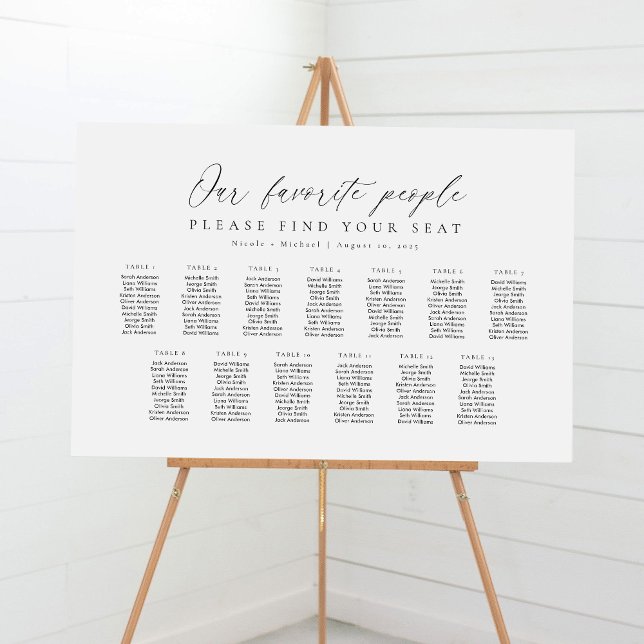 Our favorite people
PLEASE FIND YOUR SEAT
Nicole + Michael | August 10, 2025
TABLE 1
Sarah Anderson
Liana Williams
Seth Williams
Kristen Anderson
Oliver Anderson
David Williams
Michelle Smith
Jeorge Smith
Olivia Smith
Jack Anderson
TABLE 2
Michelle Smith
Jeorge Smith
Olivia Smith
Kristen Anderson
Oliver Anderson
Jack Anderson
Sarah Anderson
Liana Williams
Seth Williams
David Williams
TABLE 3
Jack Anderson
Sarah Anderson
Liana Williams
Seth Williams
Oliver Anderson
David Williams
Michelle Smith
Jeorge Smith
Olivia Smith
Kristen Anderson
TABLE 4
David Williams
Michelle Smith
Jeorge Smith
Olivia Smith
Jack Anderson
Sarah Anderson
Liana Williams
Seth Williams
Kristen Anderson
Oliver Anderson
TABLE 5
Sarah Anderson
Liana Williams
Seth Williams
Kristen Anderson
Oliver Anderson
David Williams
Michelle Smith
Jeorge Smith
Olivia Smith
Jack Anderson
TABLE 6
Michelle Smith
Jeorge Smith
Olivia Smith
Kristen Anderson
Oliver Anderson
Jack Anderson
Sarah Anderson
Liana Williams
Seth Williams
David Williams
TABLE 7
David Williams
Michelle Smith
Jeorge Smith
Olivia Smith
Jack Anderson
Sarah Anderson
Liana Williams
Seth Williams
Kristen Anderson
Oliver Anderson
TABLE 8
Jack Anderson
Sarah Anderson
Liana Williams
Seth Williams
David Williams
Michelle Smith
Jeorge Smith
Olivia Smith
Kristen Anderson
Oliver Anderson
TABLE 9
David Williams
Michelle Smith
Jeorge Smith
Olivia Smith
Jack Anderson
Sarah Anderson
Liana Williams
Seth Williams
Kristen Anderson
Oliver Anderson
TABLE 10
Sarah Anderson
Liana Williams
Seth Williams
Jack Anderson
David Williams
Michelle Smith
Jeorge Smith
Olivia Smith
Kristen Anderson
Oliver Anderson
TABLE 11
Jack Anderson
Sarah Anderson
Liana Williams
Seth Williams
David Williams
Michelle Smith
Jeorge Smith
Olivia Smith
Kristen Anderson
Oliver Anderson
TABLE 12
Michelle Smith
Jeorge Smith
Olivia Smith
Kristen Anderson
Oliver Anderson
Jack Anderson
Sarah Anderson
Liana Williams
Seth Williams
David Williams
TABLE 13
David Williams
Michelle Smith
Jeorge Smith
Olivia Smith
Jack Anderson
Sarah Anderson
Liana Williams
Seth Williams
Kristen Anderson
Oliver Anderson